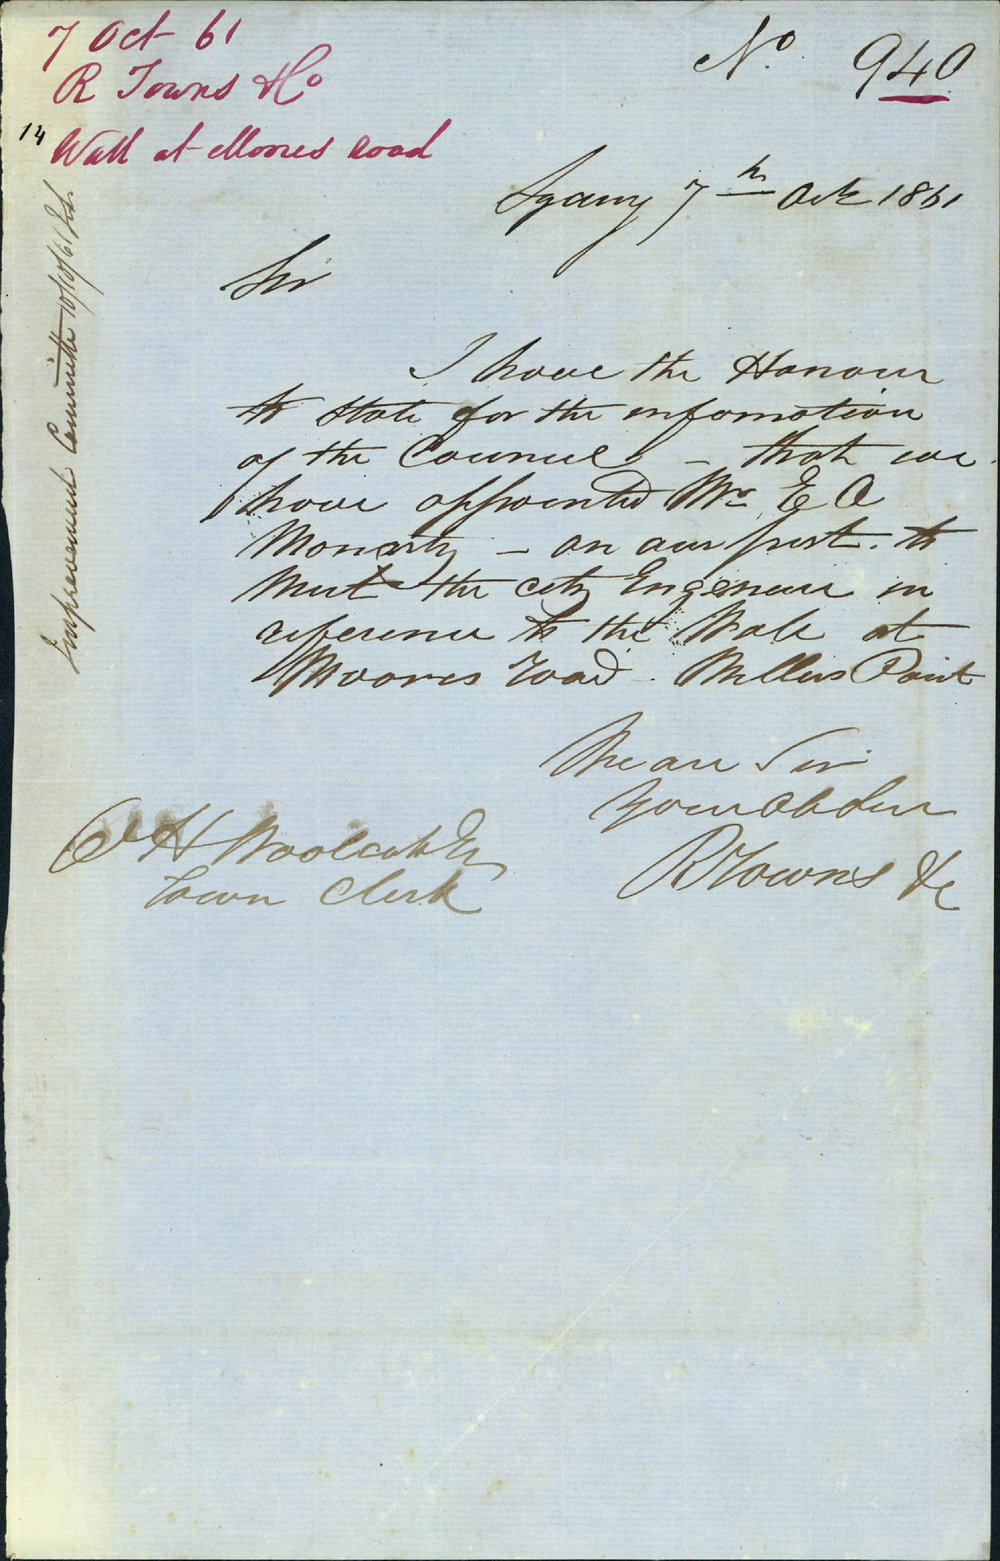 7 Oct 61
R Towns & Co
14
Wall at Moores road
No. 940
Improvement Committee 10/10/61
Sydney 7th Oct 1861
Sir
I have the Honour
to state for the information
of the Council - that we
have appointed Mr E O
Moriarty - on our part. to
meet the City Engeneer in
reference to the Wall at
Moores road - Millers Point
We are Sir
Your Ob Ser
R Towns & Co
C H Woolcott Esq
Town Clerk